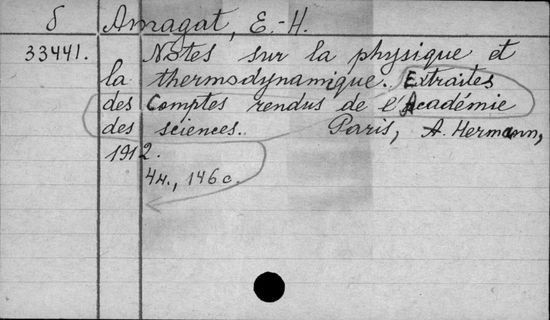 δ Amagat, E.-H.
33441. Notes sur la physique et
la thermodynamique. Extraites
des Comptes rendus de l'Académie
des sciences. Paris, A. Hermann,
1912.
4н., 146 с.